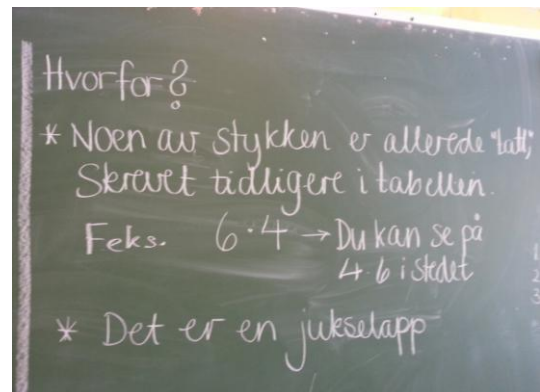 Hvorfor?
* Noen av stykken er allerede "tatt",
Skrevet tidligere i tabellen.
F.eks. 6·4 → Du kan se på
4·6 i stedet
* Det er en jukselapp
1
2
3